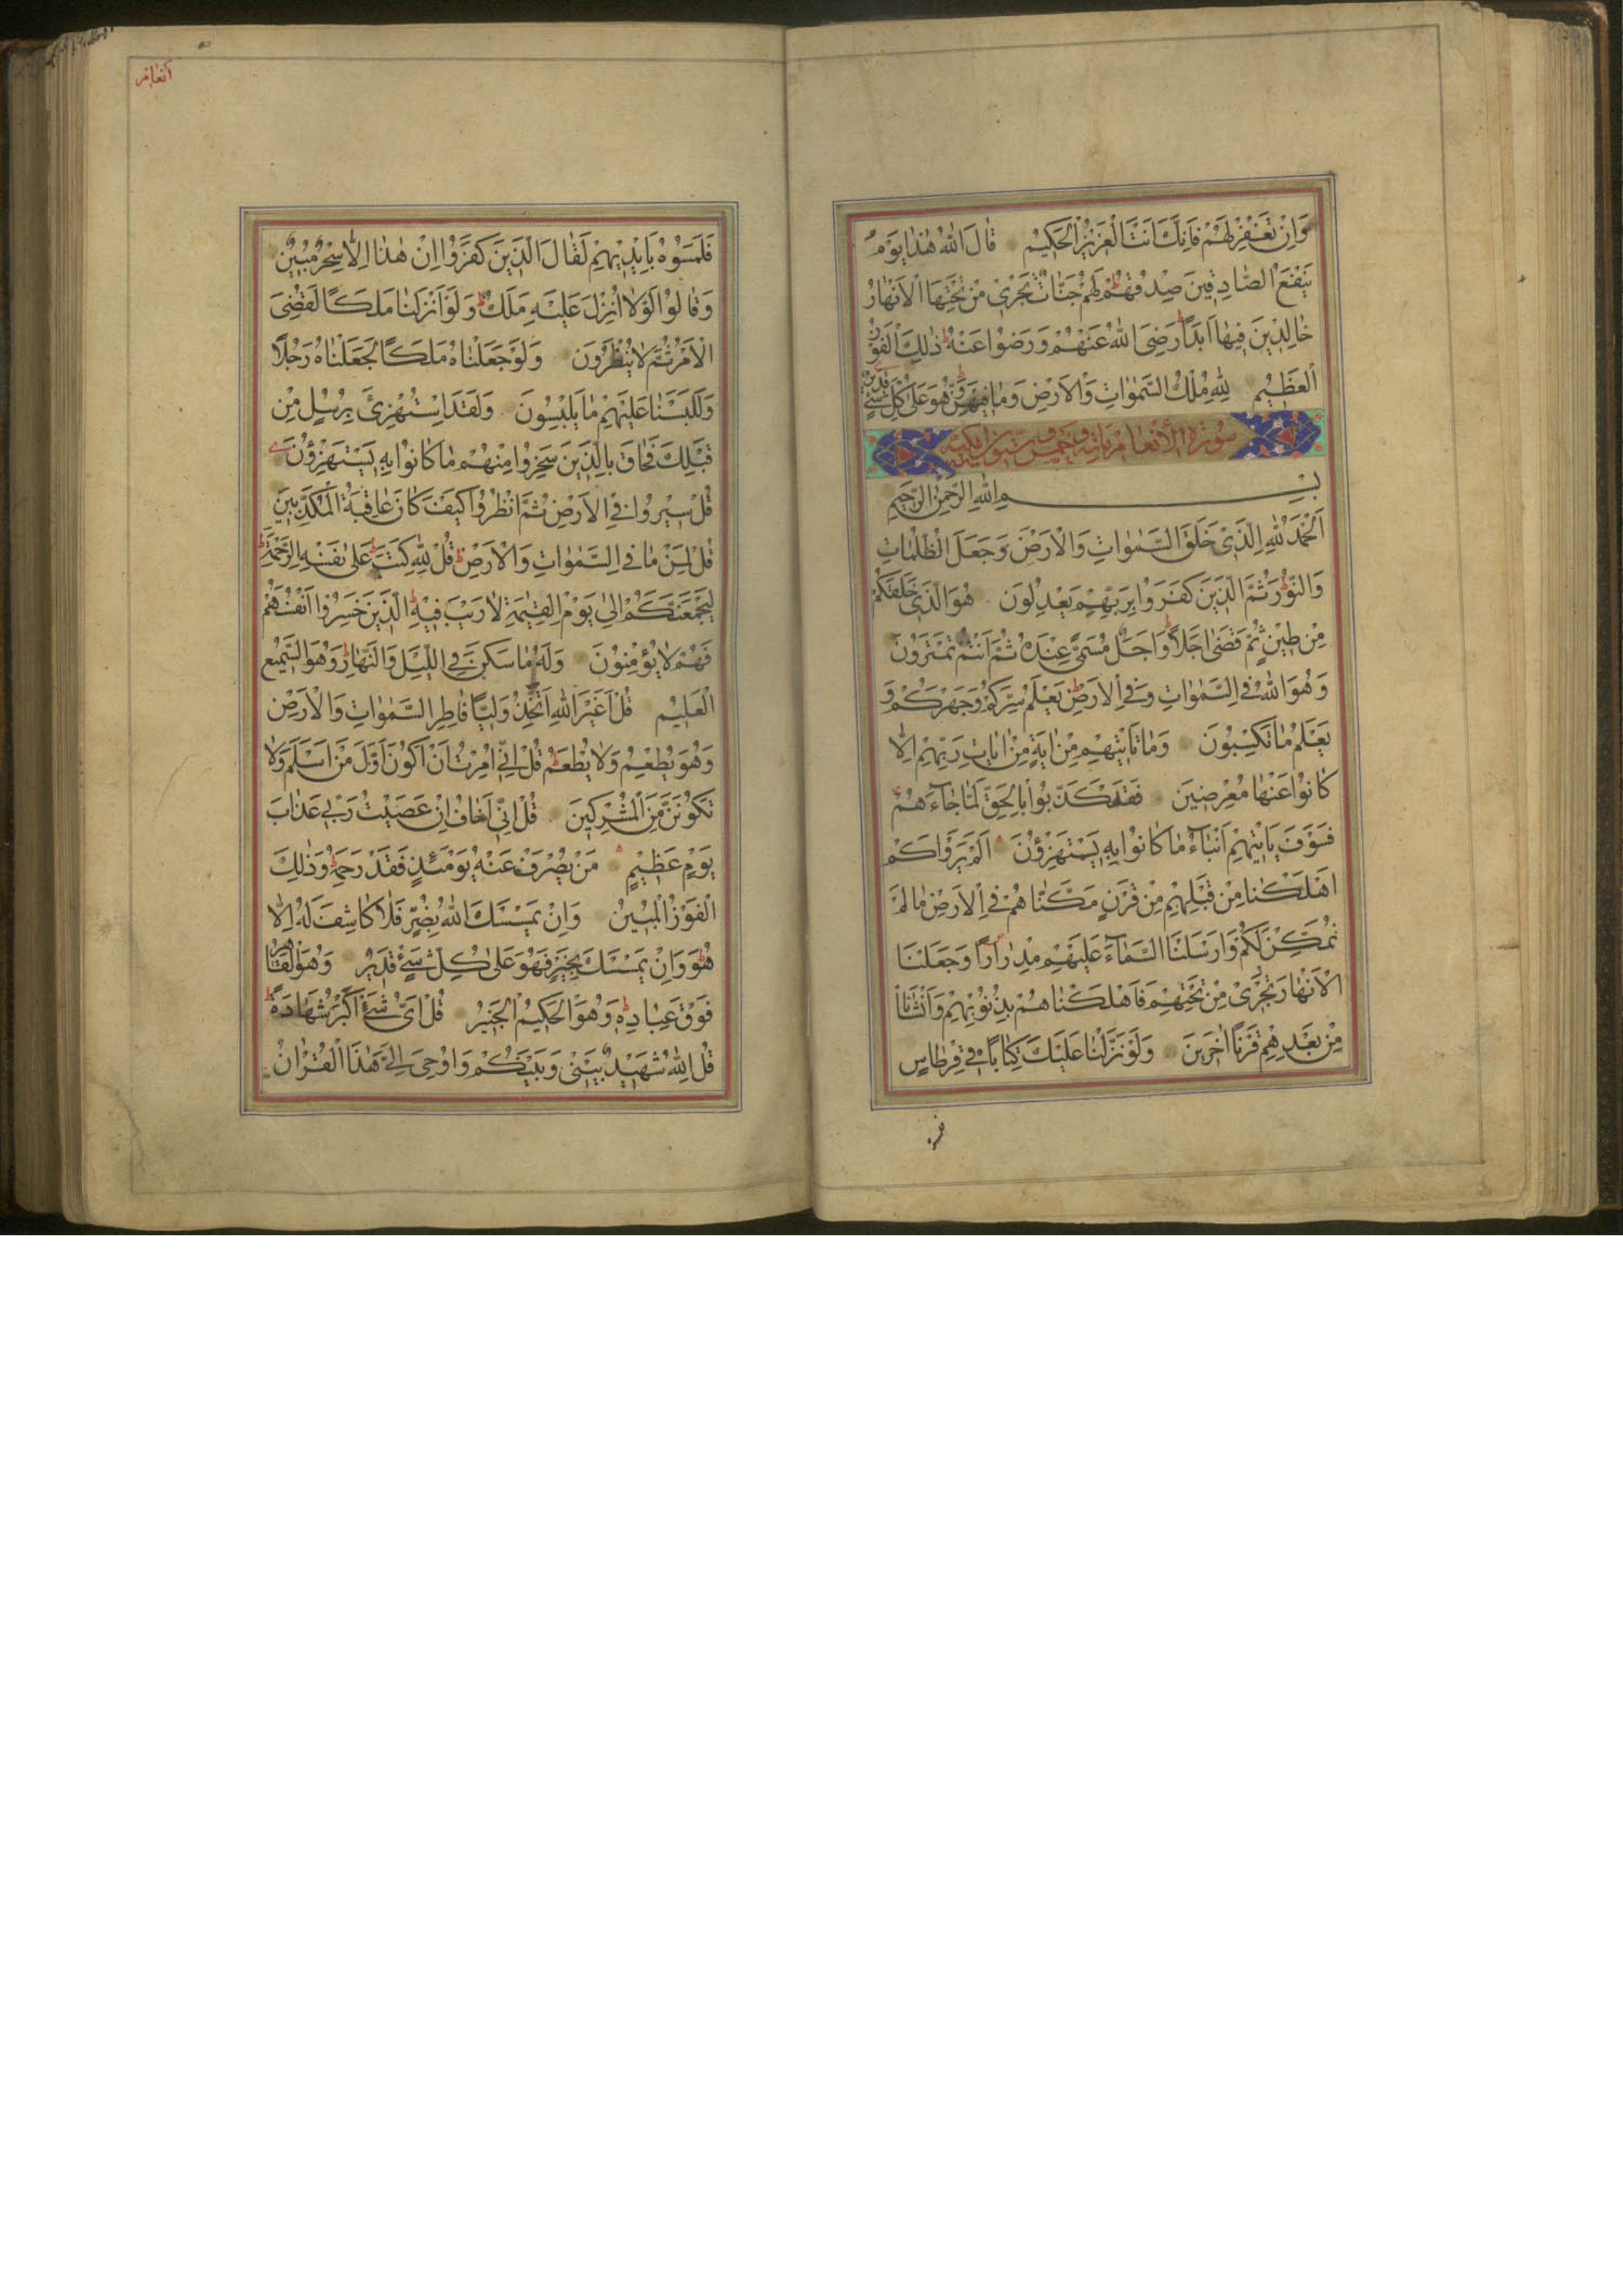 وَاِنْ تَغْفِرْ لَهُمْ فَاِنَّكَ اَنْتَ الْعَزِيزُ الْحَكِيمُ قَالَ اللّٰهُ هٰذَا يَوْمُ
يَنْفَعُ الصَّادِقِينَ صِدْقُهُمْ لَهُمْ جَنَّاتٌ تَجْرِي مِنْ تَحْتِهَا الْاَنْهَارُ
خَالِدِينَ فِيهَا اَبَدًا رَضِيَ اللّٰهُ عَنْهُمْ وَرَضُوا عَنْهُ ذٰلِكَ الْفَوْزُ
الْعَظِيمُ لِلّٰهِ مُلْكُ السَّمٰوَاتِ وَالْاَرْضِ وَمَا فِيهِنَّ وَهُوَ عَلٰى كُلِّ شَيْءٍ قَدِيرٌ
سورة الأنعام مائة وخمس وستون اية مكية
بِسْمِ اللّٰهِ الرَّحْمٰنِ الرَّحِيمِ
اَلْحَمْدُ لِلّٰهِ الَّذِي خَلَقَ السَّمٰوَاتِ وَالْاَرْضَ وَجَعَلَ الظُّلُمَاتِ
وَالنُّورَ ثُمَّ الَّذِينَ كَفَرُوا بِرَبِّهِمْ يَعْدِلُونَ هُوَ الَّذِي خَلَقَكُمْ
مِنْ طِينٍ ثُمَّ قَضٰى اَجَلًا وَاَجَلٌ مُسَمًّى عِنْدَهُ ثُمَّ اَنْتُمْ تَمْتَرُونَ
وَهُوَ اللّٰهُ فِي السَّمٰوَاتِ وَفِي الْاَرْضِ يَعْلَمُ سِرَّكُمْ وَجَهْرَكُمْ وَ
يَعْلَمُ مَا تَكْسِبُونَ وَمَا تَاْتِيهِمْ مِنْ اٰيَةٍ مِنْ اٰيَاتِ رَبِّهِمْ اِلَّا
كَانُوا عَنْهَا مُعْرِضِينَ فَقَدْ كَذَّبُوا بِالْحَقِّ لَمَّا جَآءَهُمْ
فَسَوْفَ يَاْتِيهِمْ اَنْبَآءُ مَا كَانُوا بِهِ يَسْتَهْزِؤُنَ اَلَمْ يَرَوْا كَمْ
اَهْلَكْنَا مِنْ قَبْلِهِمْ مِنْ قَرْنٍ مَكَّنَّاهُمْ فِي الْاَرْضِ مَا لَمْ
نُمَكِّنْ لَكُمْ وَاَرْسَلْنَا السَّمَآءَ عَلَيْهِمْ مِدْرَارًا وَجَعَلْنَا
الْاَنْهَارَ تَجْرِي مِنْ تَحْتِهِمْ فَاَهْلَكْنَاهُمْ بِذُنُوبِهِمْ وَاَنْشَاْنَا
مِنْ بَعْدِهِمْ قَرْنًا اٰخَرِينَ وَلَوْ نَزَّلْنَا عَلَيْكَ كِتَابًا فِي قِرْطَاسٍ
انعام
فَلَمَسُوهُ بِاَيْدِيهِمْ لَقَالَ الَّذِينَ كَفَرُوا اِنْ هٰذَا اِلَّا سِحْرٌ مُبِينٌ
وَقَالُوا لَوْلَا اُنْزِلَ عَلَيْهِ مَلَكٌ وَلَوْ اَنْزَلْنَا مَلَكًا لَقُضِيَ
الْاَمْرُ ثُمَّ لَا يُنْظَرُونَ وَلَوْ جَعَلْنَاهُ مَلَكًا لَجَعَلْنَاهُ رَجُلًا
وَلَلَبَسْنَا عَلَيْهِمْ مَا يَلْبِسُونَ وَلَقَدِ اسْتُهْزِئَ بِرُسُلٍ مِنْ
قَبْلِكَ فَحَاقَ بِالَّذِينَ سَخِرُوا مِنْهُمْ مَا كَانُوا بِهِ يَسْتَهْزِؤُنَ
قُلْ سِيرُوا فِي الْاَرْضِ ثُمَّ انْظُرُوا كَيْفَ كَانَ عَاقِبَةُ الْمُكَذِّبِينَ
قُلْ لِمَنْ مَا فِي السَّمٰوَاتِ وَالْاَرْضِ قُلْ لِلّٰهِ كَتَبَ عَلٰى نَفْسِهِ الرَّحْمَةَ
لَيَجْمَعَنَّكُمْ اِلٰى يَوْمِ الْقِيٰمَةِ لَا رَيْبَ فِيهِ الَّذِينَ خَسِرُوا اَنْفُسَهُمْ
فَهُمْ لَا يُؤْمِنُونَ وَلَهُ مَا سَكَنَ فِي اللَّيْلِ وَالنَّهَارِ وَهُوَ السَّمِيعُ
الْعَلِيمُ قُلْ اَغَيْرَ اللّٰهِ اَتَّخِذُ وَلِيًّا فَاطِرِ السَّمٰوَاتِ وَالْاَرْضِ
وَهُوَ يُطْعِمُ وَلَا يُطْعَمُ قُلْ اِنِّي اُمِرْتُ اَنْ اَكُونَ اَوَّلَ مَنْ اَسْلَمَ وَلَا
تَكُونَنَّ مِنَ الْمُشْرِكِينَ قُلْ اِنِّي اَخَافُ اِنْ عَصَيْتُ رَبِّي عَذَابَ
يَوْمٍ عَظِيمٍ مَنْ يُصْرَفْ عَنْهُ يَوْمَئِذٍ فَقَدْ رَحِمَهُ وَذٰلِكَ
الْفَوْزُ الْمُبِينُ وَاِنْ يَمْسَسْكَ اللّٰهُ بِضُرٍّ فَلَا كَاشِفَ لَهُ اِلَّا
هُوَ وَاِنْ يَمْسَسْكَ بِخَيْرٍ فَهُوَ عَلٰى كُلِّ شَيْءٍ قَدِيرٌ وَهُوَ الْقَاهِرُ
فَوْقَ عِبَادِهِ وَهُوَ الْحَكِيمُ الْخَبِيرُ قُلْ اَيُّ شَيْءٍ اَكْبَرُ شَهَادَةً
قُلِ اللّٰهُ شَهِيدٌ بَيْنِي وَبَيْنَكُمْ وَاُوحِيَ اِلَيَّ هٰذَا الْقُرْاٰنُ